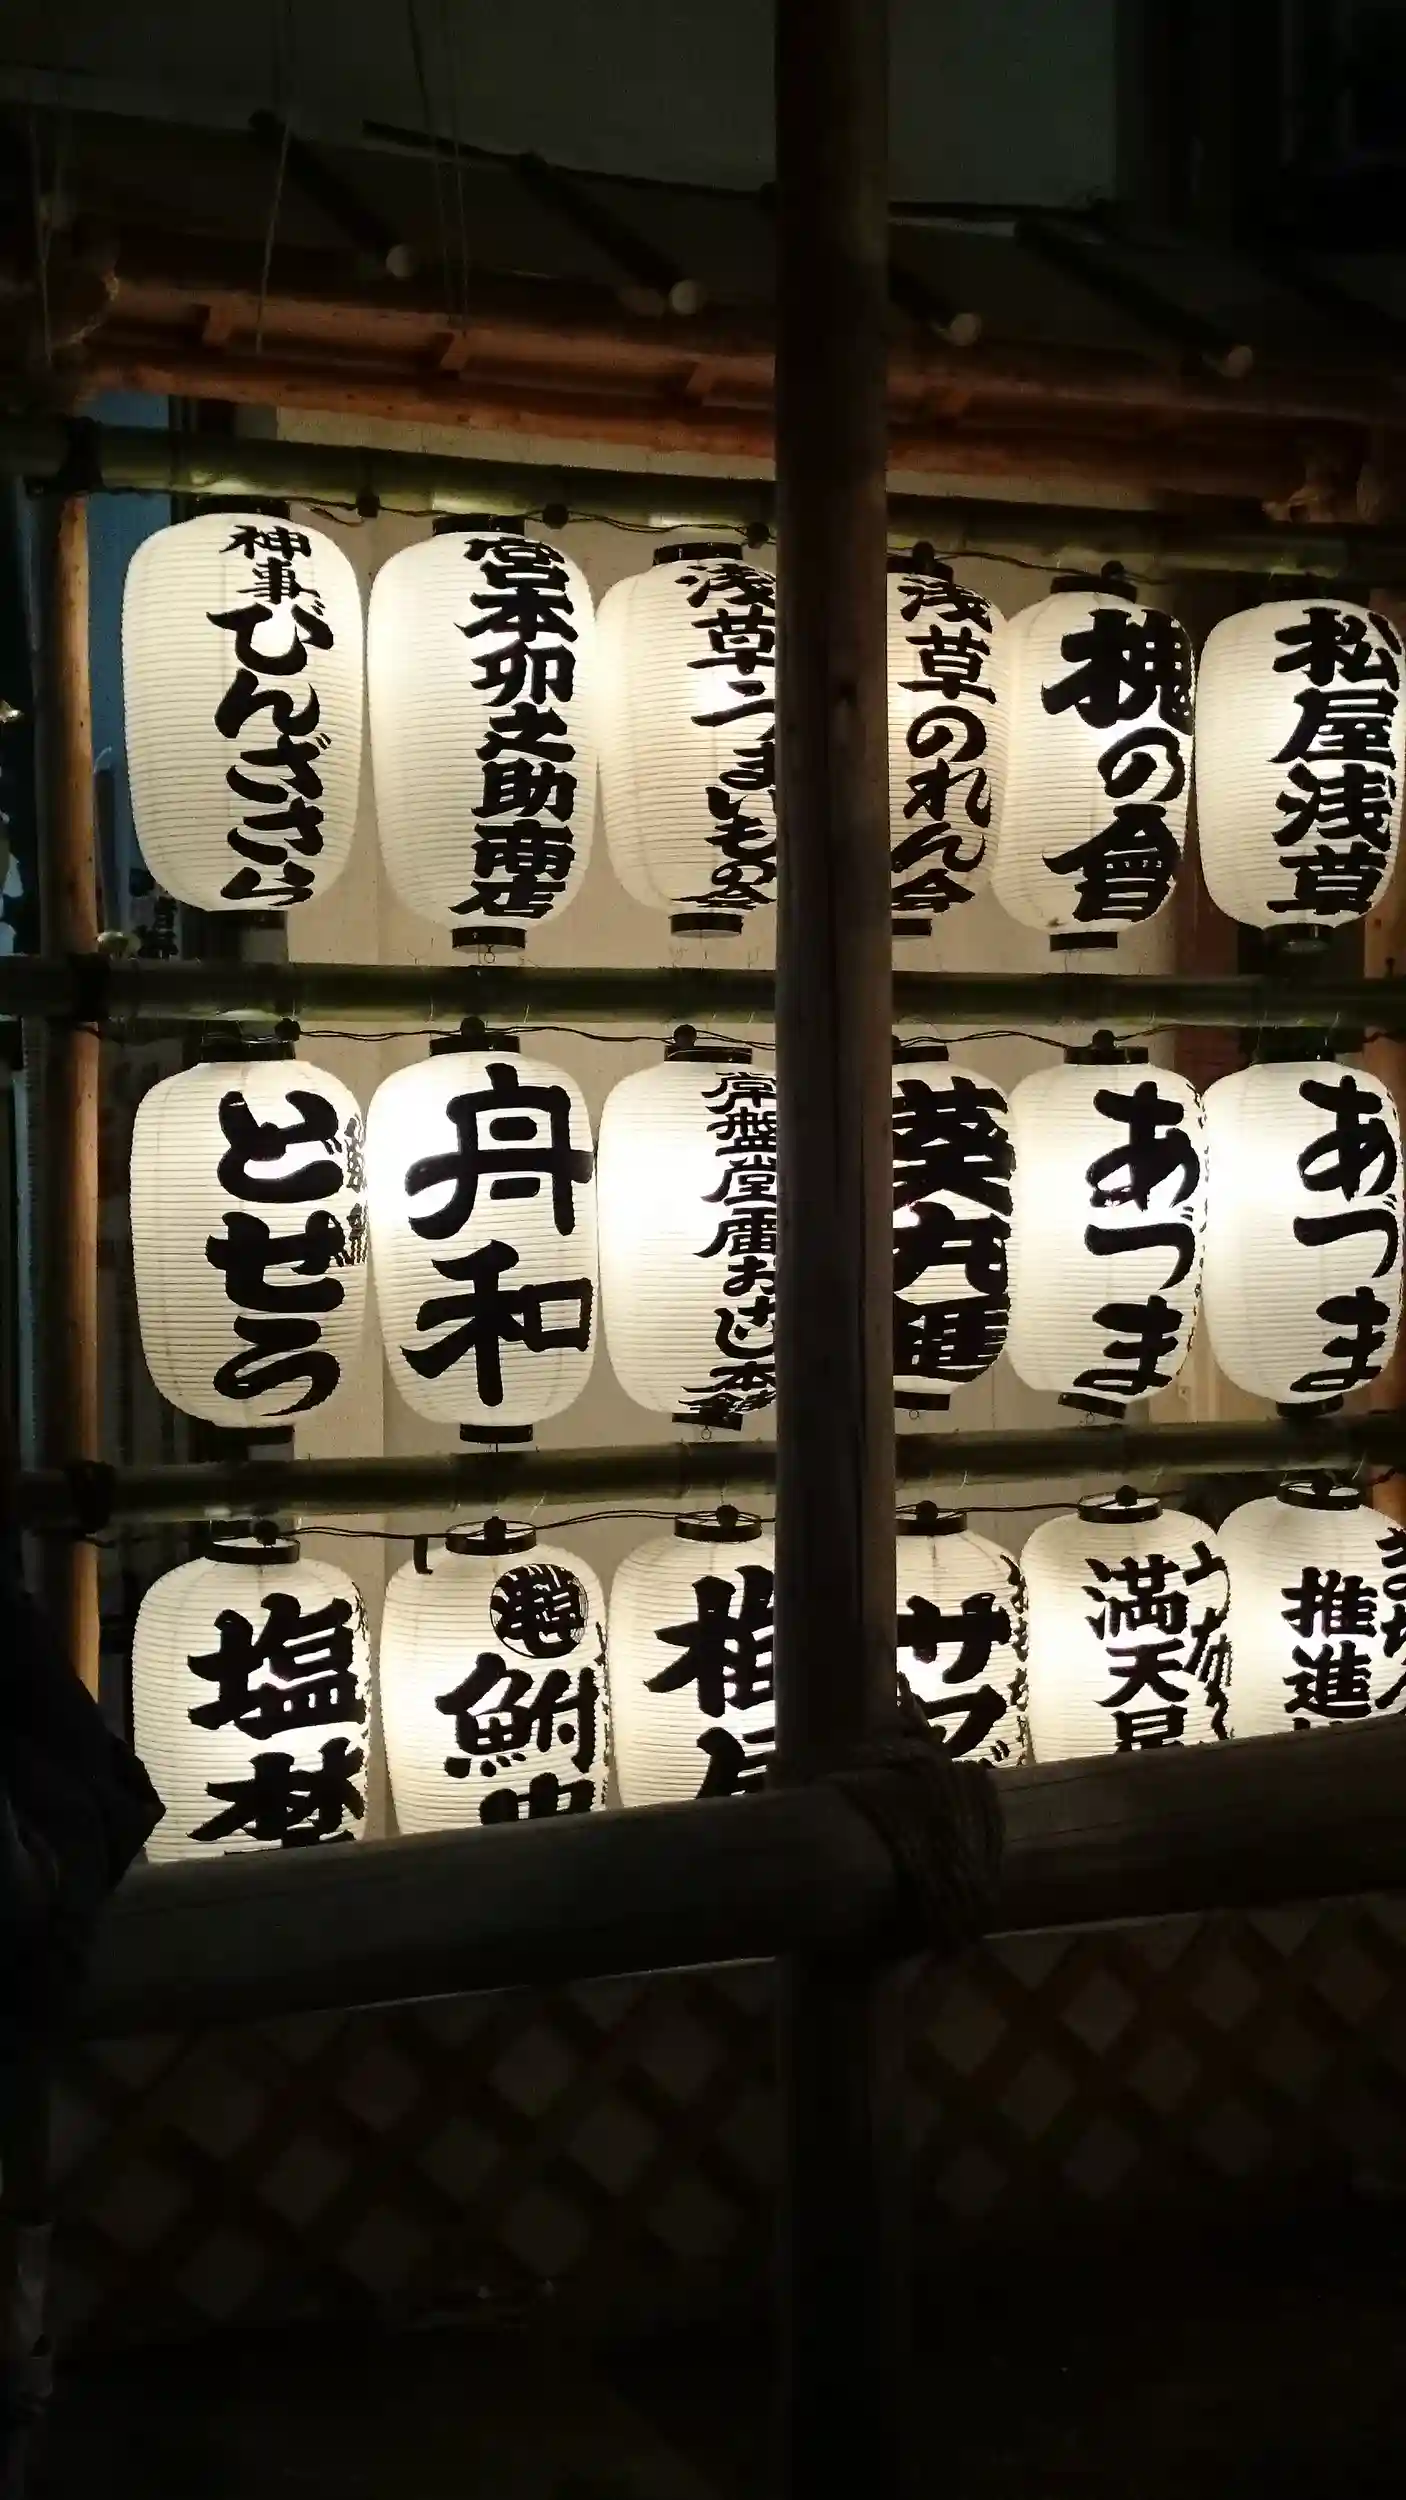 神事びんざさら
宮本卯之助商店
浅草うまいもの会
浅草のれん会
槐の會
松屋浅草
どぜう
丹和
常盤堂雷おこし本舗
葵丸進
あづま
あづま
塩
鮒
サブ
満天星
推進